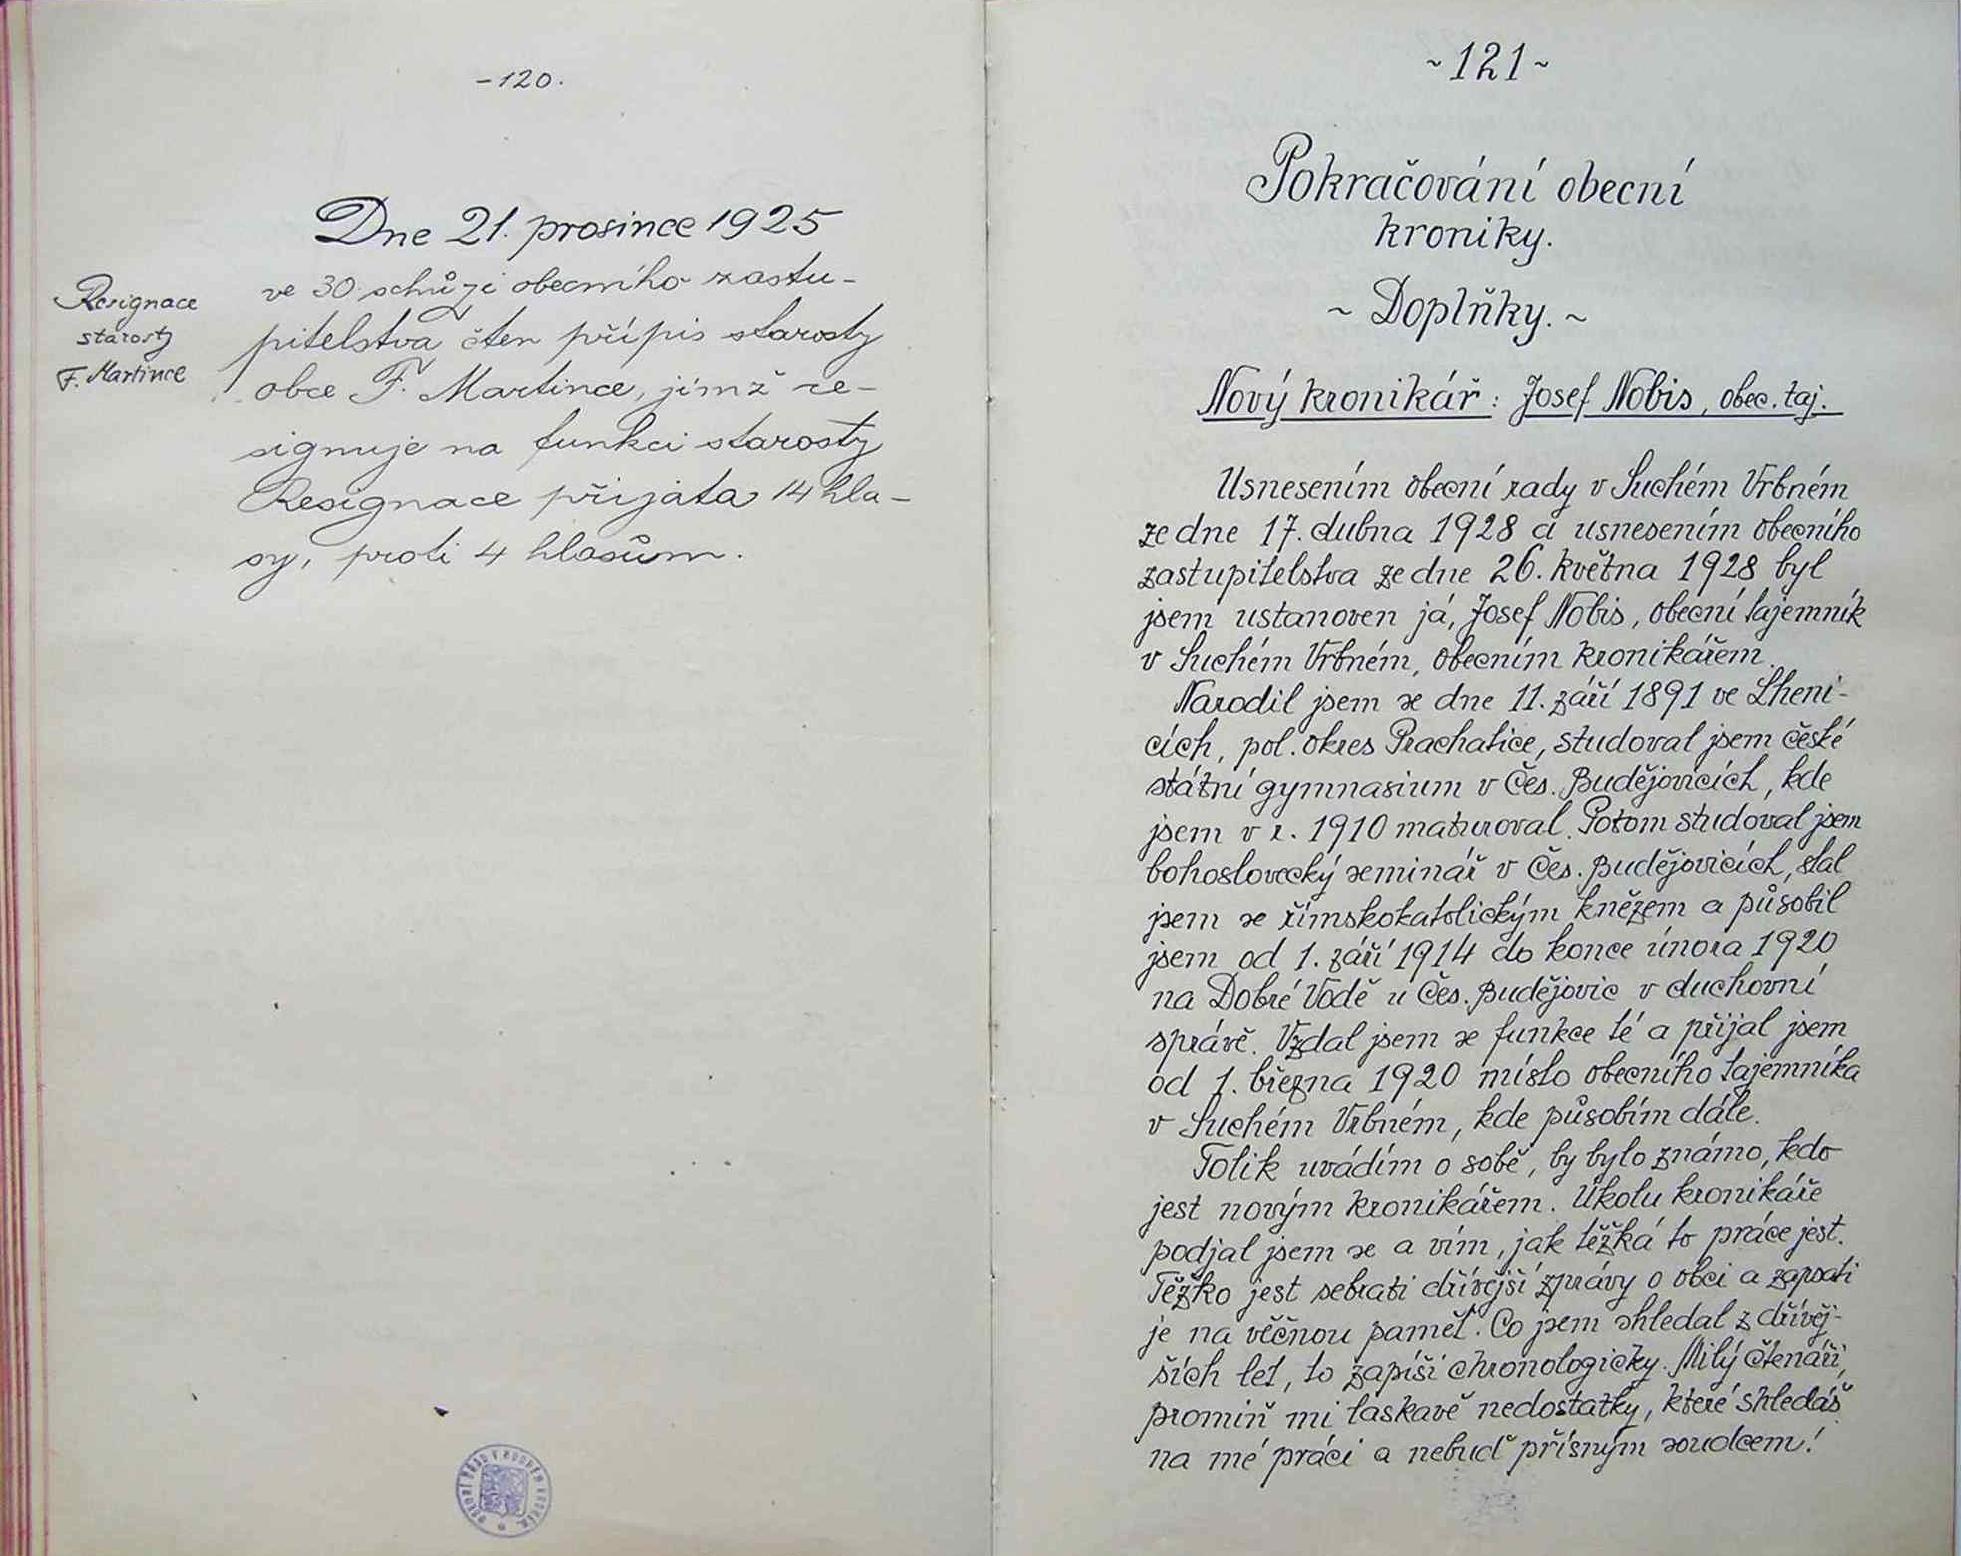 -120.
Dne 21. prosince 1925
Resignace
starosty
F. Martince
ve 30 schůzi obecního zastu-
pitelstva čten přípis starosty
obce F. Martince, jímž re-
signuje na funkci starosty
Resignace přijata 14 hla-
sy, proti 4 hlasům.
~121~
Pokračování obecní
kroniky.
~ Doplňky. ~
Nový kronikář: Josef Nobis, obec. taj.
Usnesením obecní rady v Suchém Vrbném
ze dne 17. dubna 1928 a usnesením obecního
zastupitelstva ze dne 26. května 1928 byl
jsem ustanoven já, Josef Nobis, obecní tajemník
v Suchém Vrbném, obecním kronikářem.
Narodil jsem se dne 11. září 1891 ve Lheni-
cích, pol. okres Prachatice, studoval jsem české
státní gymnasium v Čes. Budějovicích, kde
jsem v r. 1910 maturoval. Potom studoval jsem
bohoslovecký seminář v Čes. Budějovicích, stal
jsem se římskokatolickým knězem a působil
jsem od 1. září 1914 do konce února 1920
na Dobré Vodě u Čes. Budějovic v duchovní
správě. Vzdal jsem se funkce té a přijal jsem
od 1. března 1920 místo obecního tajemníka
v Suchém Vrbném, kde působím dále.
Tolik uvádím o sobě, by bylo známo, kdo
jest novým kronikářem. Úkolu kronikáře
podjal jsem se a vím, jak těžká to práce jest.
Těžko jest sebrati dřívější zprávy o obci a zapsati
je na věčnou paměť. Co jsem shledal z dřívěj-
ších let, to zapíši chronologicky. Milý čtenáři,
promiň mi laskavě nedostatky, které shledáš
na mé práci a nebuď přísným soudcem!